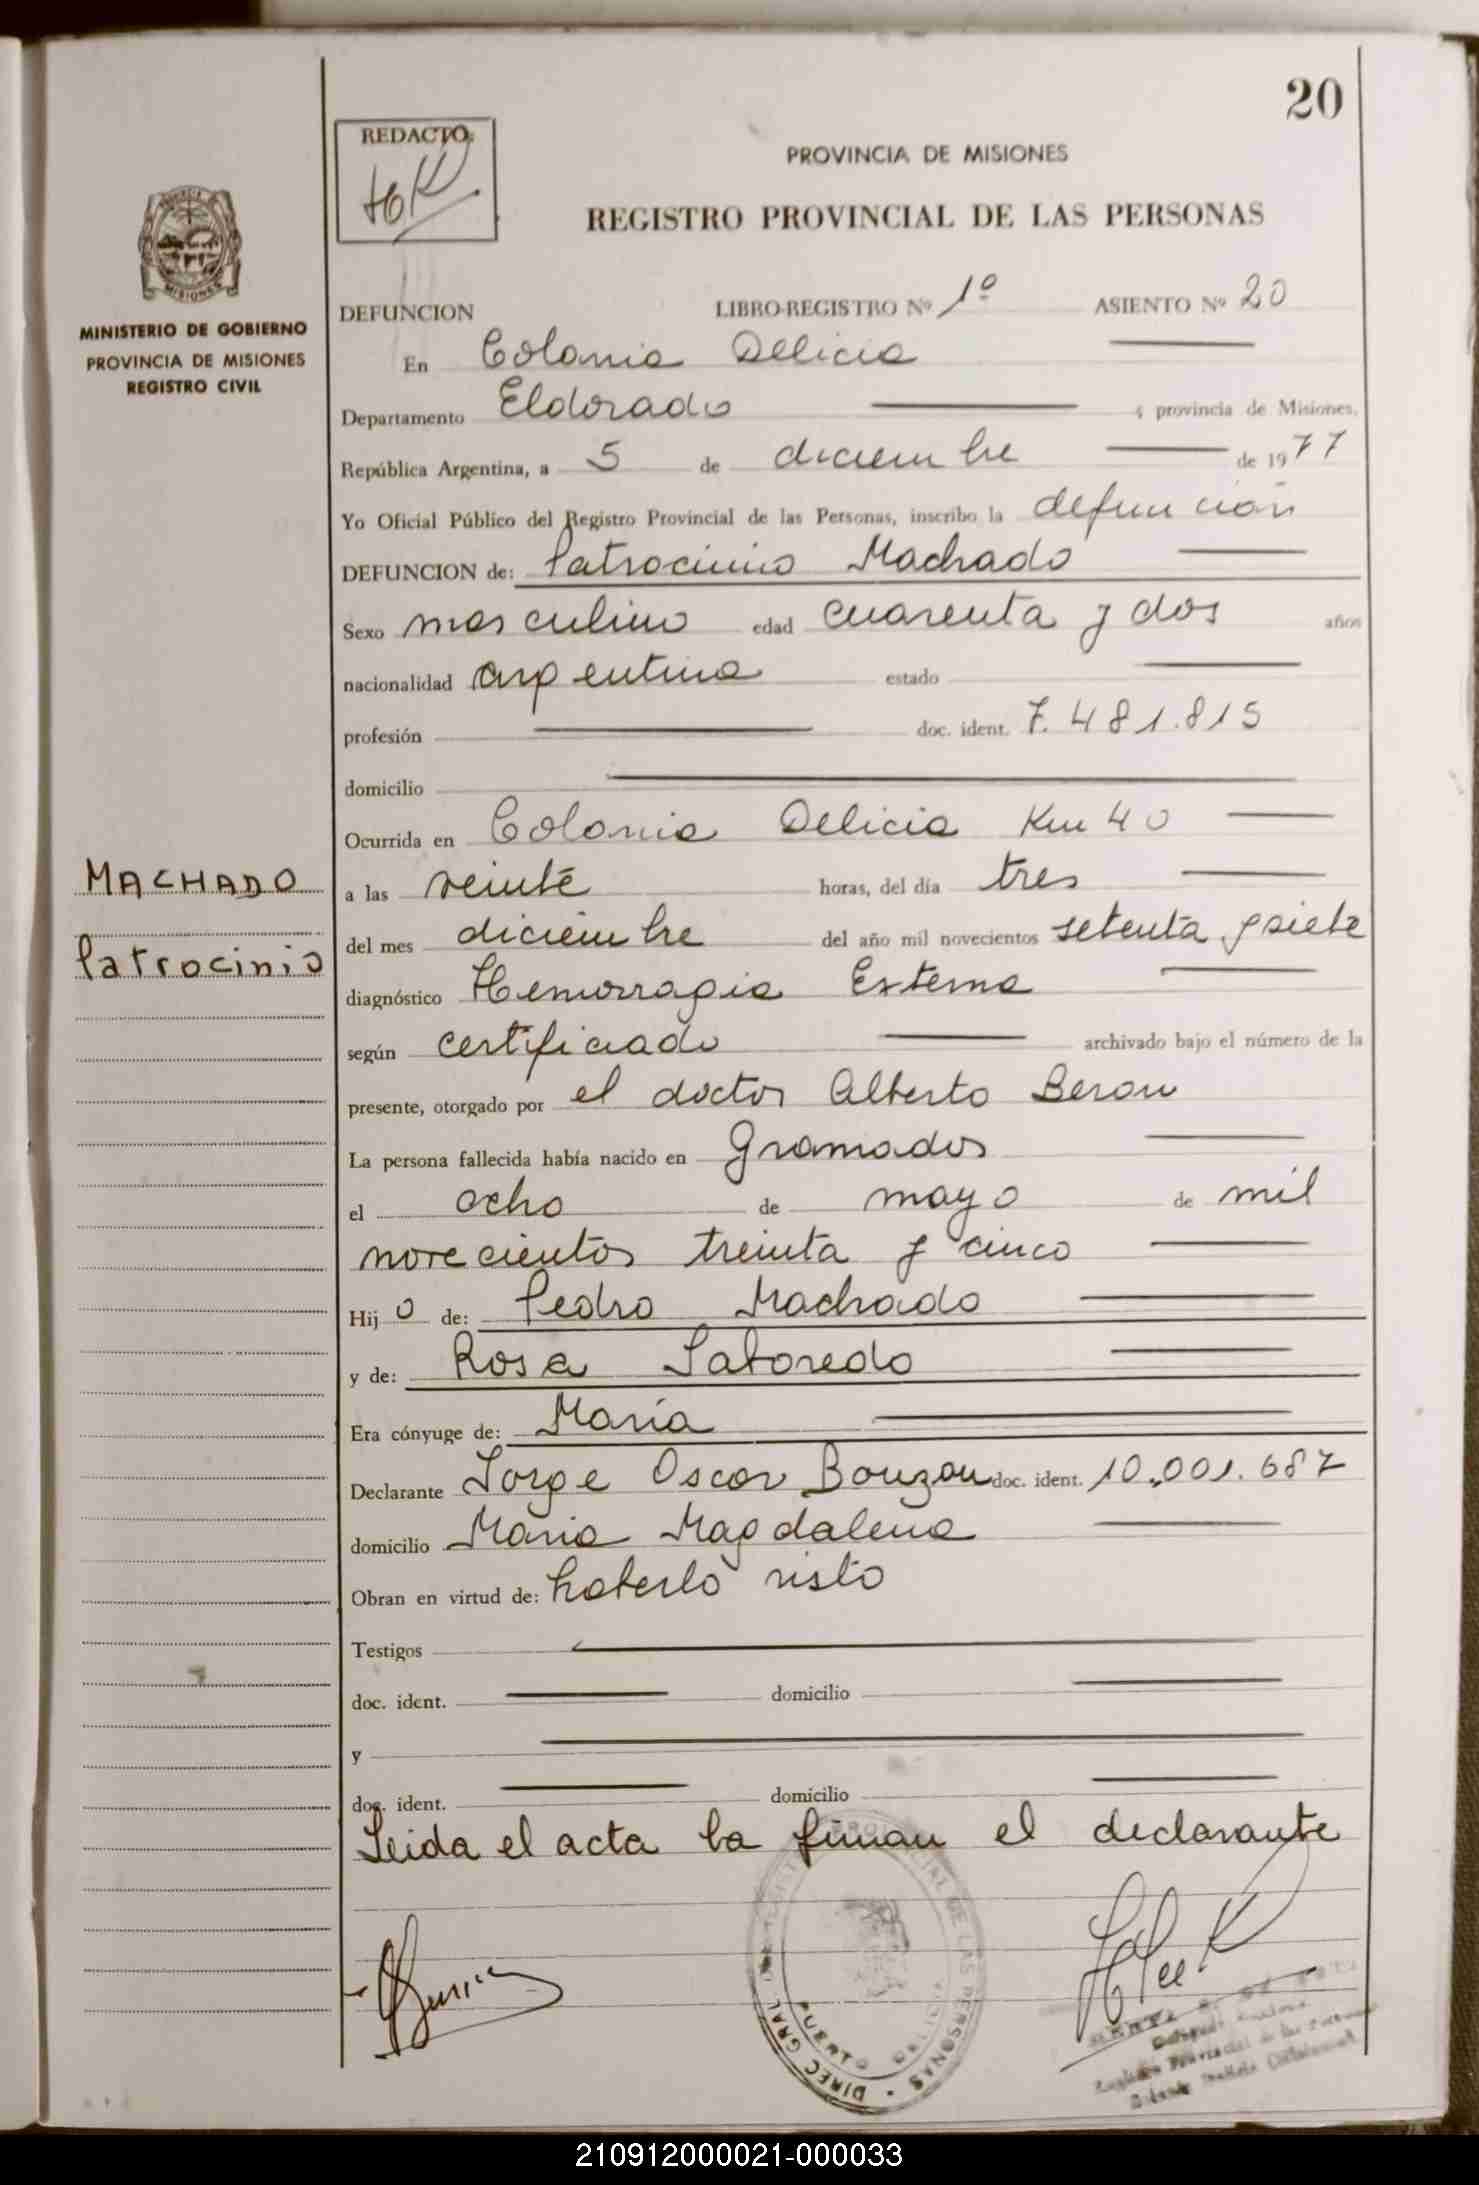 20
REDACTO:
PROVINCIA DE MISIONES
REGISTRO PROVINCIAL DE LAS PERSONAS
MISIONES
MINISTERIO DE GOBIERNO
PROVINCIA DE MISIONES
REGISTRO CIVIL
DEFUNCION LIBRO-REGISTRO Nº 1º ASIENTO Nº 20
En Colonia Delicia
Departamento Eldorado , provincia de Misiones,
República Argentina, a 5 de diciembre de 1977
Yo Oficial Público del Registro Provincial de las Personas, inscribo la defunción
DEFUNCION de: Patrocinio Machado
Sexo masculino edad cuarenta y dos años
nacionalidad argentina estado
profesión doc. ident. 7.481.815
domicilio
Ocurrida en Colonia Delicia Km 40
MACHADO
Patrocinio
a las veinte horas, del día tres
del mes diciembre del año mil novecientos setenta y siete
diagnóstico Hemorragia Externa
según certificado archivado bajo el número de la
presente, otorgado por el doctor Alberto Beron
La persona fallecida había nacido en Gramados
el ocho de mayo de mil
novecientos treinta y cinco
Hijo de: Pedro Machado
y de: Rosa Saboredo
Era cónyuge de: María
Declarante Jorge Oscar Bouzon doc. ident. 10.001.687
domicilio Maria Magdalena
Obran en virtud de: haberlo visto
Testigos
doc. ident. domicilio
y
doc. ident. domicilio
Leida el acta la firman el declarante
DIREC. GRAL. DE LAS PERSONAS
PUERTO DELICIA
210912000021-000033